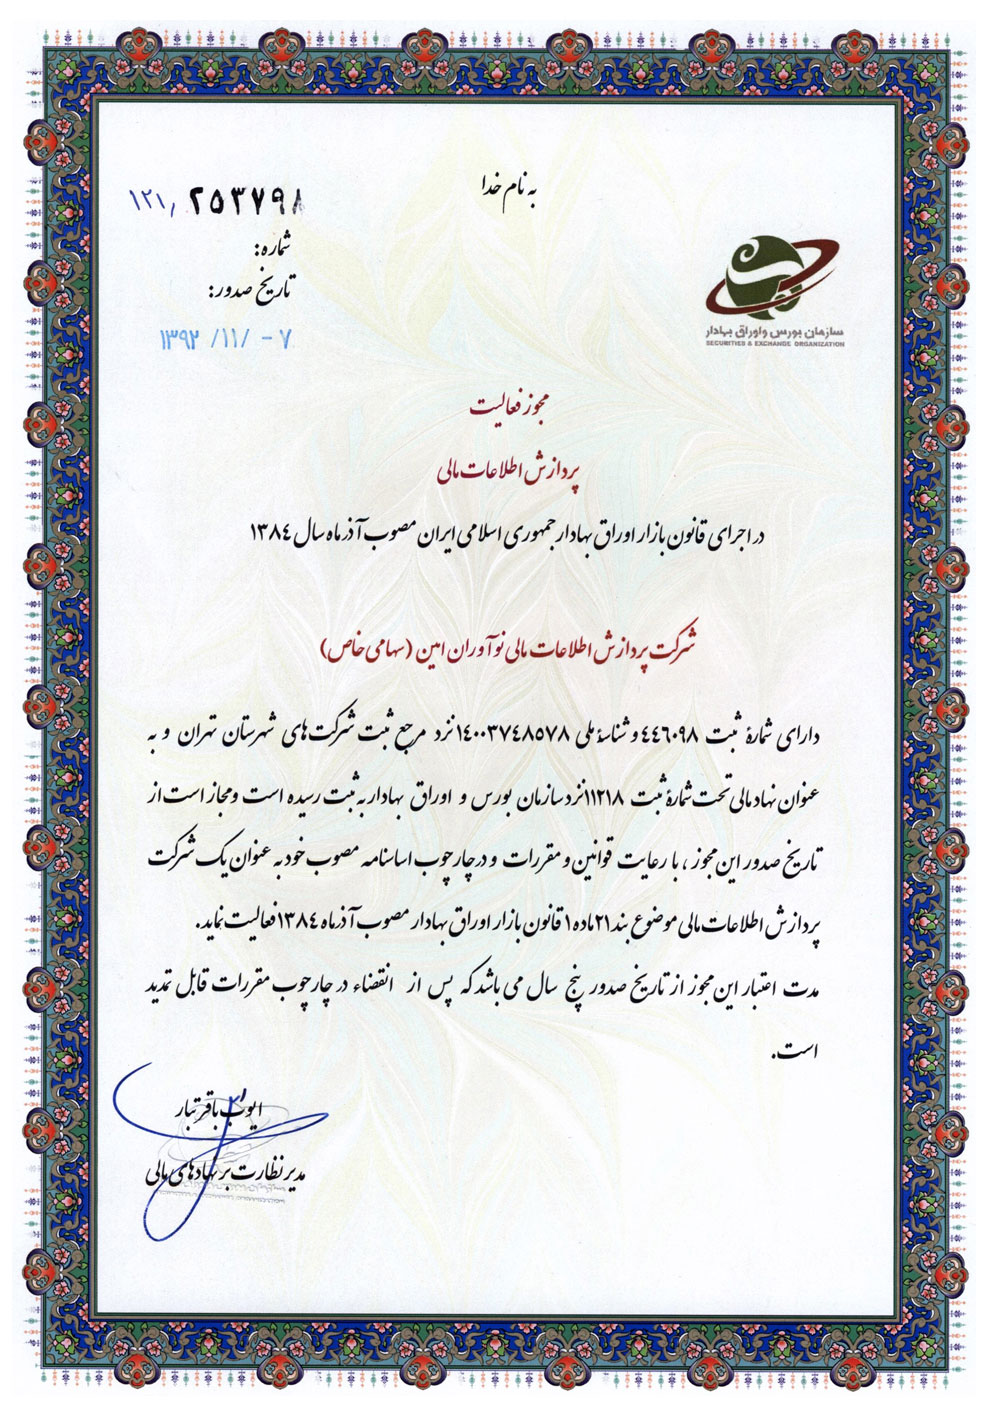 به نام خدا
۱۲۱/ ۲۵۳۷۹۸
شماره:
تاریخ صدور:
۱۳۹۲/۱۱/ -۷
سازمان بورس و اوراق بهادار
SECURITIES & EXCHANGE ORGANIZATION
مجوز فعالیت
پردازش اطلاعات مالی
در اجرای قانون بازار اوراق بهادار جمهوری اسلامی ایران مصوب آذرماه سال ۱۳۸۴
شرکت پردازش اطلاعات مالی نوآوران امین (سهامی خاص)
دارای شمارهٔ ثبت ۴۴۶۰۹۸ و شناسهٔ ملی ۱۴۰۰۳۷۴۸۵۷۸ نزد مرجع ثبت شرکت‌های شهرستان تهران و به
عنوان نهاد مالی تحت شمارهٔ ثبت ۱۱۲۱۸ نزد سازمان بورس و اوراق بهادار به ثبت رسیده است و مجاز است از
تاریخ صدور این مجوز، با رعایت قوانین و مقررات و در چارچوب اساسنامه مصوب خود به عنوان یک شرکت
پردازش اطلاعات مالی موضوع بند ۲۱ ماده ۱ قانون بازار اوراق بهادار مصوب آذرماه ۱۳۸۴ فعالیت نماید.
مدت اعتبار این مجوز از تاریخ صدور پنج سال می باشد که پس از انقضاء در چارچوب مقررات قابل تمدید
است.
ایوب باقرتبار
مدیر نظارت بر نهادهای مالی